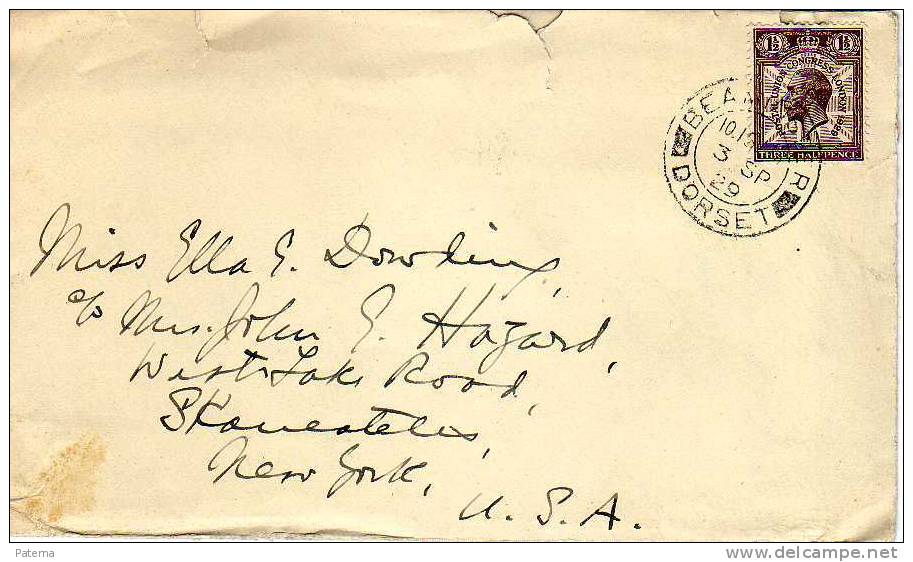 1½ 1½
POSTAL UNION CONGRESS LONDON 1929
THREE HALFPENCE
BEAMINSTER
10.15
3 SP
29
DORSET
Miss Ella E. Dowding,
c/o Mrs. John E. Hazard,
West Lake Road,
Skaneateles,
New York,
U. S. A.
Paterna
www.delcampe.net